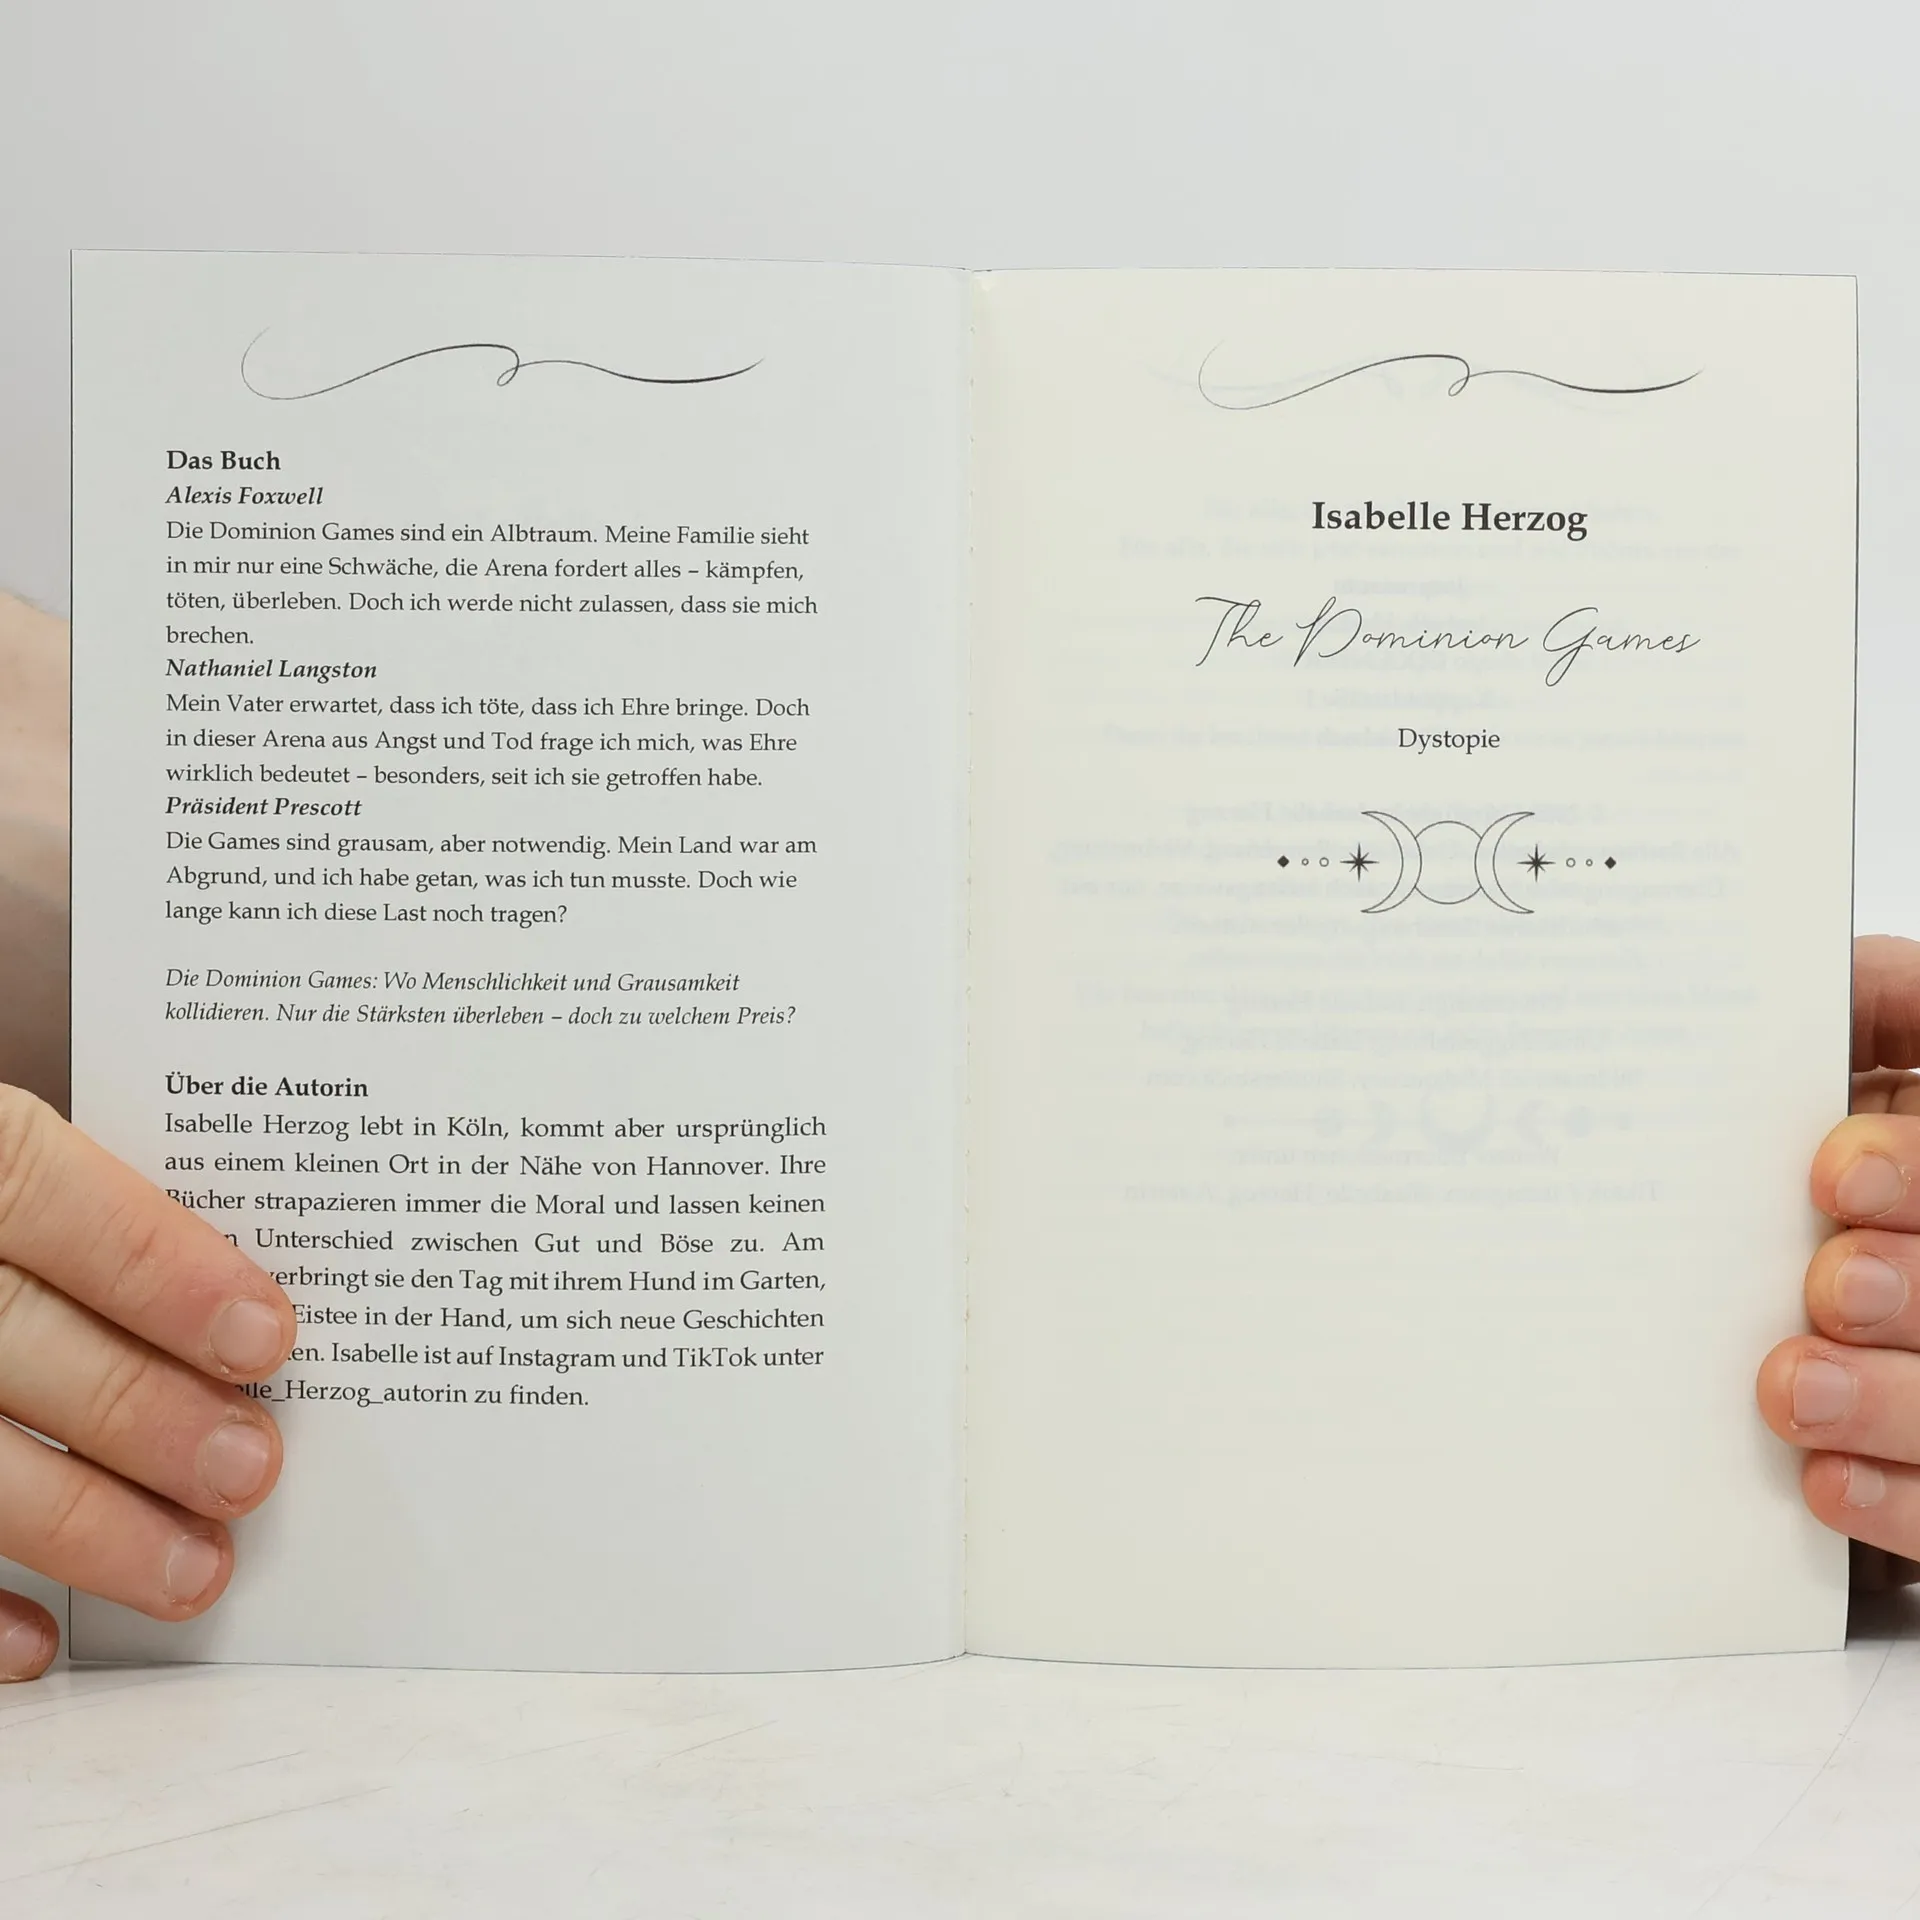 Das Buch
Alexis Foxwell
Die Dominion Games sind ein Albtraum. Meine Familie sieht
in mir nur eine Schwäche, die Arena fordert alles – kämpfen,
töten, überleben. Doch ich werde nicht zulassen, dass sie mich
brechen.
Nathaniel Langston
Mein Vater erwartet, dass ich töte, dass ich Ehre bringe. Doch
in dieser Arena aus Angst und Tod frage ich mich, was Ehre
wirklich bedeutet – besonders, seit ich sie getroffen habe.
Präsident Prescott
Die Games sind grausam, aber notwendig. Mein Land war am
Abgrund, und ich habe getan, was ich tun musste. Doch wie
lange kann ich diese Last noch tragen?
Die Dominion Games: Wo Menschlichkeit und Grausamkeit
kollidieren. Nur die Stärksten überleben – doch zu welchem Preis?
Über die Autorin
Isabelle Herzog lebt in Köln, kommt aber ursprünglich
aus einem kleinen Ort in der Nähe von Hannover. Ihre
Bücher strapazieren immer die Moral und lassen keinen
Unterschied zwischen Gut und Böse zu. Am
verbringt sie den Tag mit ihrem Hund im Garten,
Eistee in der Hand, um sich neue Geschichten
Isabelle ist auf Instagram und TikTok unter
_Herzog_autorin zu finden.
Isabelle Herzog
The Dominion Games
Dystopie